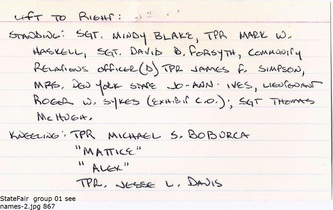 LEFT TO RIGHT:
STANDING: SGT. MINDY BLAKE, TPR MARK W.
HASKELL, SGT. DAVID B. FORSYTH, COMMUNITY
RELATIONS OFFICER(S) TPR JAMES F. SIMPSON,
MRS. NEW YORK STATE JO-ANN IVES, LIEUTENANT
ROGER W. SYKES (EXHIBIT C.O.); SGT THOMAS
MCHUGH.
KNEELING: TPR MICHAEL S. BOBURCA
"MATTICE"
"ALEX"
TPR. JESSE L. DAVIS
StateFair group 01 see
names-2.jpg 867